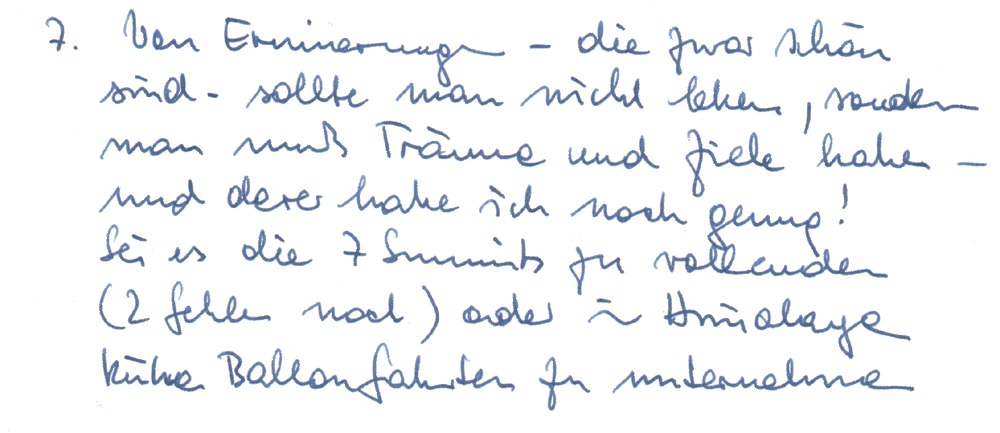 7. Von Erinnerungen - die zwar schön
sind - sollte man nicht leben, sondern
man muß Träume und Ziele haben -
und derer habe ich noch genug!
Sei es die 7 Summits zu vollenden
(2 fehlen noch) oder im Himalaya
kühne Ballonfahrten zu unternehmen